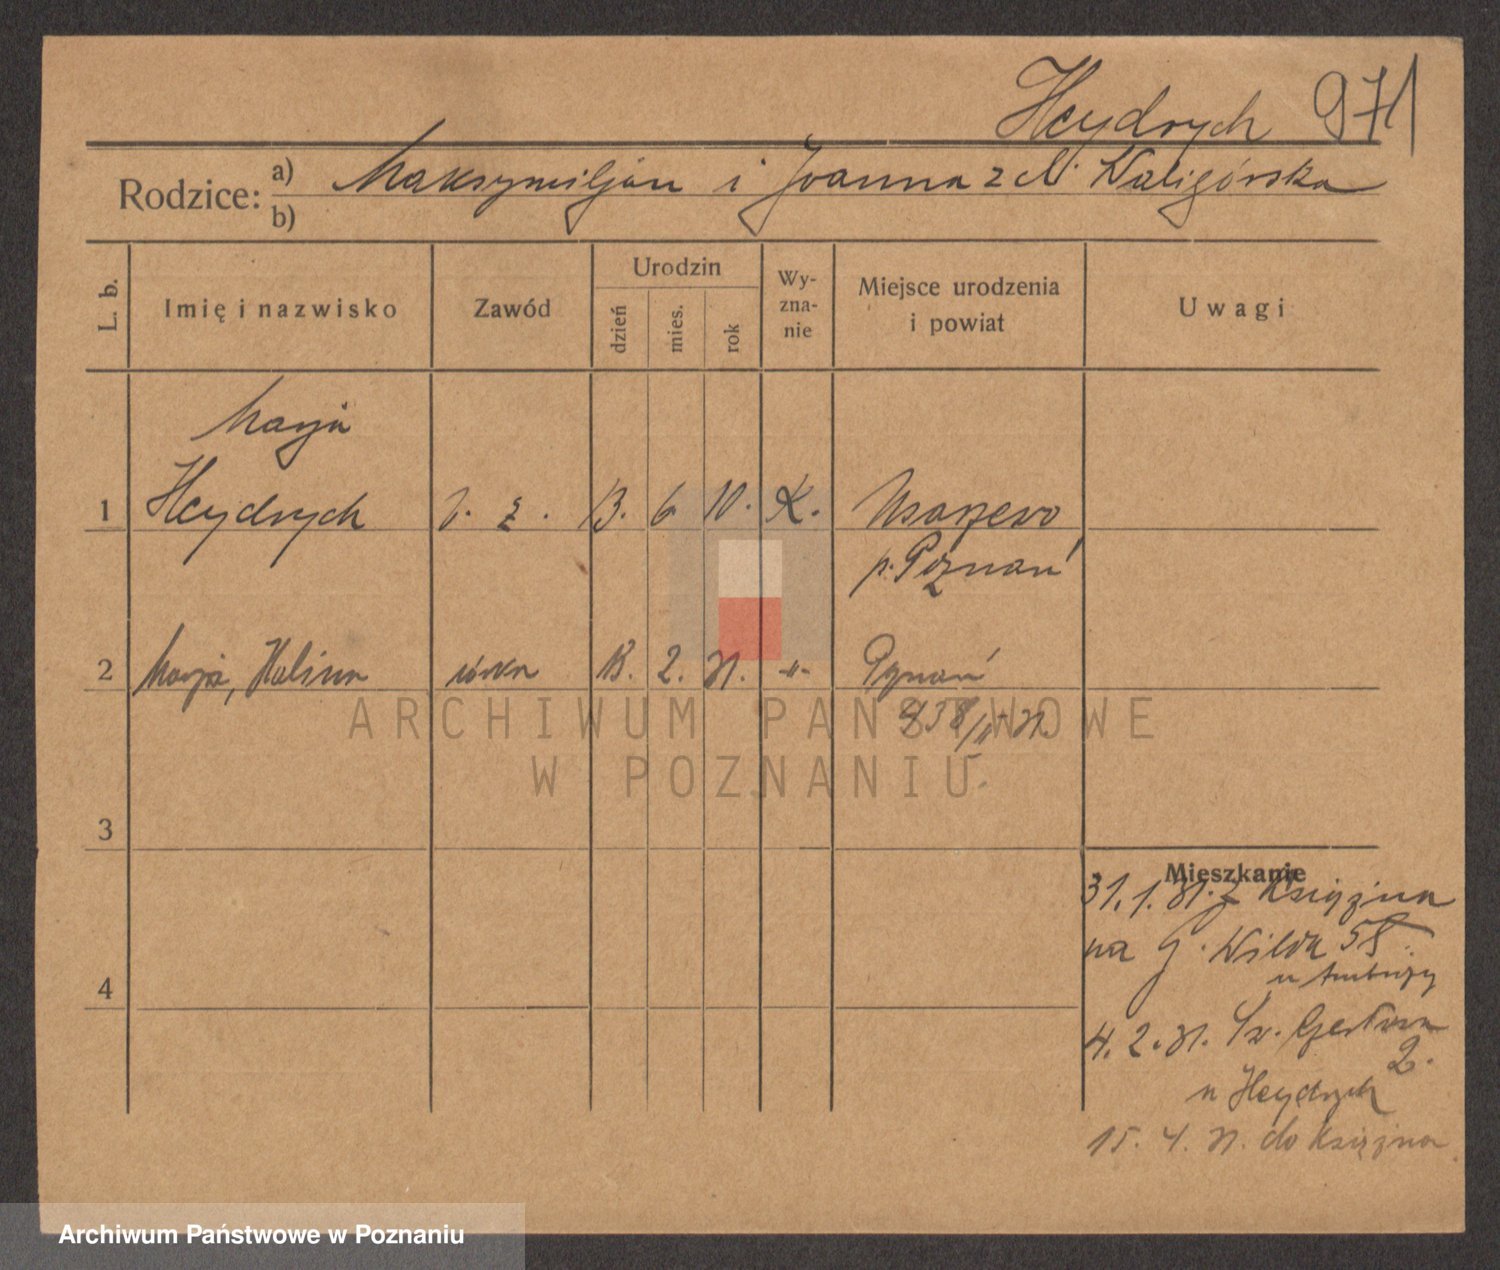 Heydrych 971
Rodzice: a) Maksymiljan i Joanna z d. Waligórska
b)
L. b. Imię i nazwisko Zawód Urodzin dzień mies. rok Wy-zna-nie Miejsce urodzenia i powiat Uwagi
Marja
1 Heydrych b. z. 13. 6 10. K.
p. Poznań
2 Marja, Halina córka 13. 2. 31. -"- Poznań
438/II-31.
ARCHIWUM PAŃSTWOWE
W POZNANIU
3
Mieszkanie
31.1.31. z Książna
na G. Wilda 58.
u
4
4.2.31. Św.
2.
u Heydrych
15. 4. 31. do Książna
Archiwum Państwowe w Poznaniu